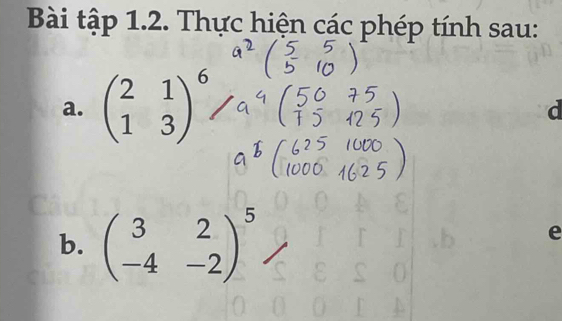 Bài tập 1.2. Thực hiện các phép tính sau:
a² (5 5
5 10)
a. (2 1
1 3)⁶
a⁴ (50 75
75 125)
a⁶ (625 1000
1000 1625)
d
b. (3 2
−4 −2)⁵
e